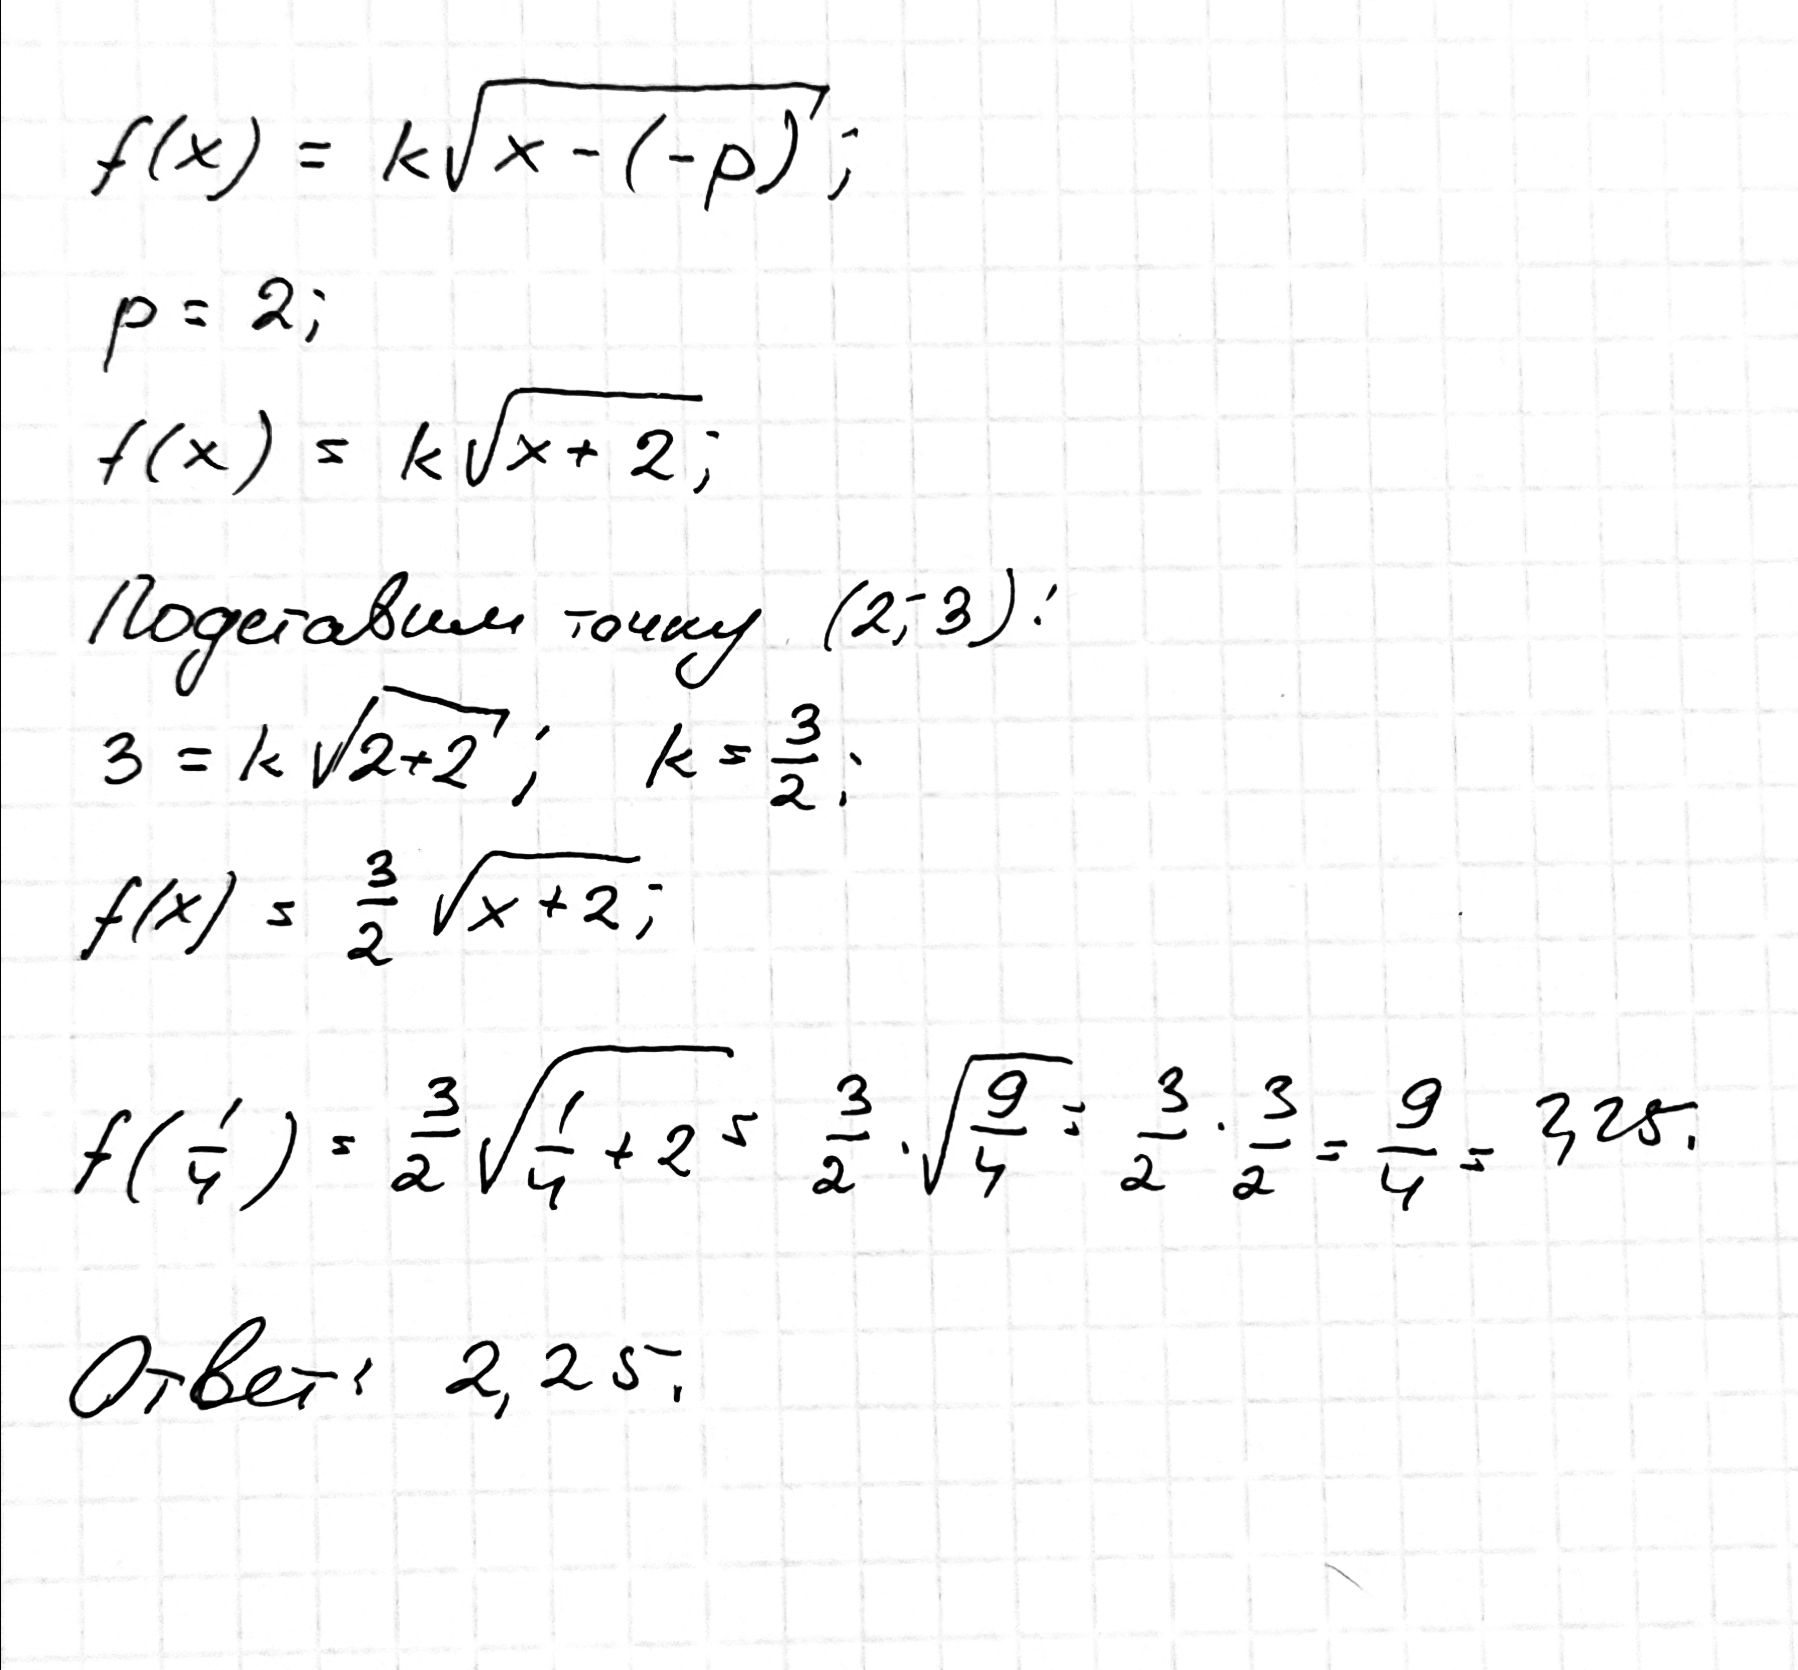 f(x) = k√(x-(-p));
p = 2;
f(x) = k√(x+2);
Подставим точку (2; 3):
3 = k√(2+2); k = 3/2;
f(x) = 3/2 √(x+2);
f(1/4) = 3/2 √(1/4 + 2) = 3/2 · √(9/4) = 3/2 · 3/2 = 9/4 = 2,25.
Ответ: 2,25.